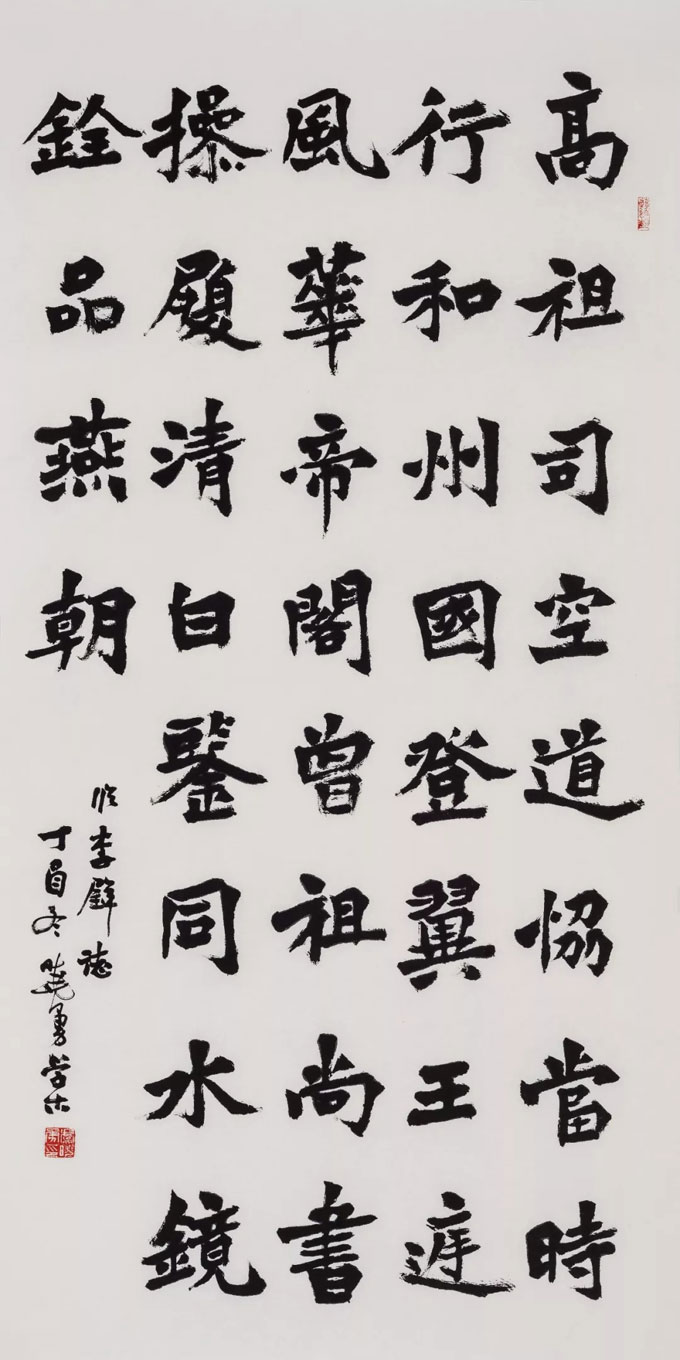 高祖司空道恊當時
行和州國登翼王庭
風華帝閣曾祖尚書
操履清白鑒同水鏡
銓品燕朝
临李璧誌
丁酉冬曉勇